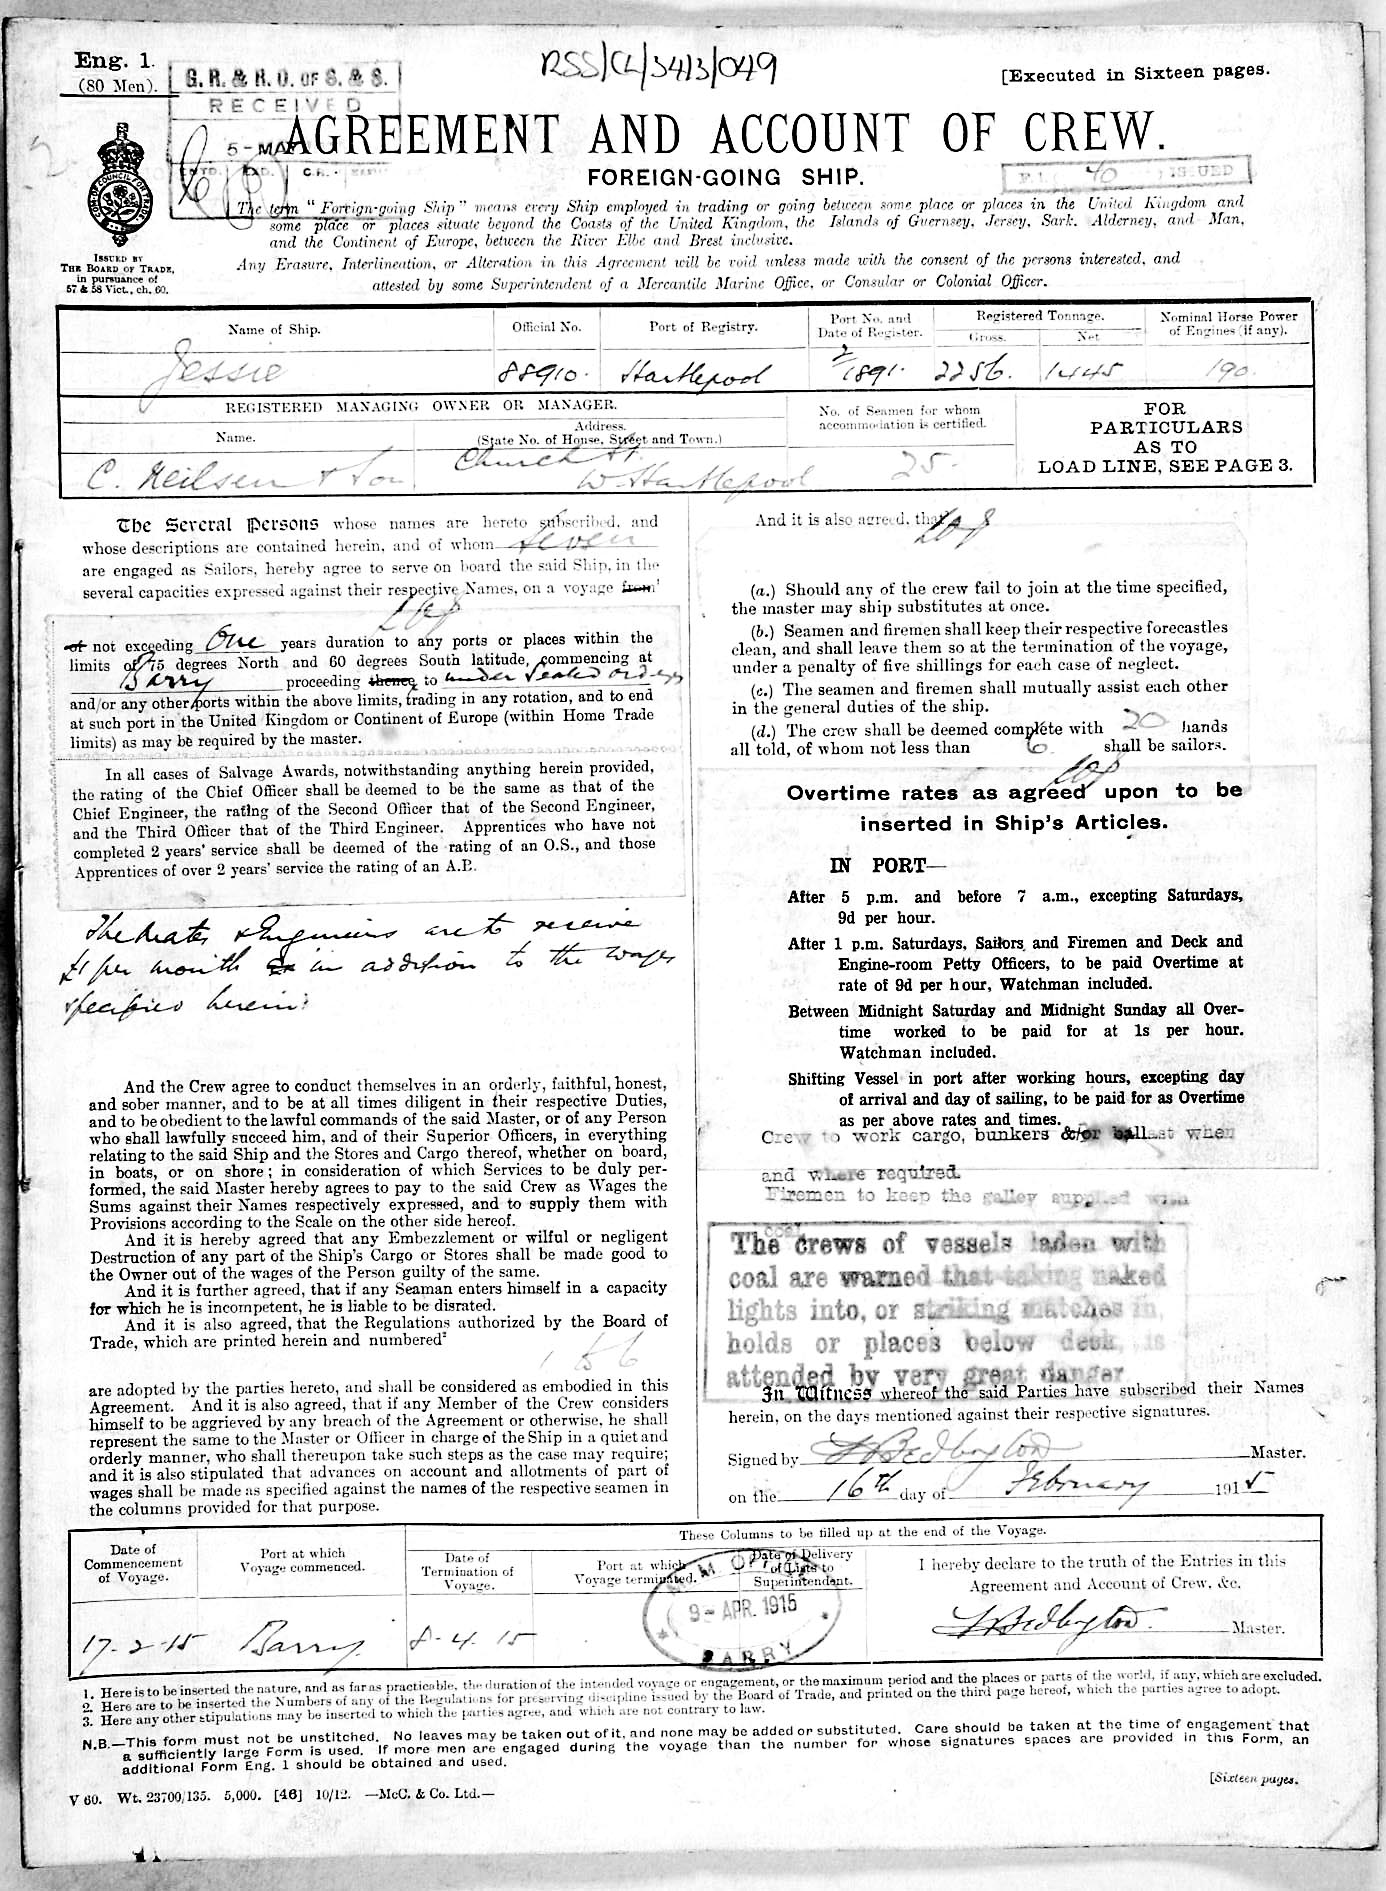 Eng. 1.
(80 Men).
G. R. & R. O. OF S. & S.
RECEIVED
5 - MAR
RSS/CL/3413/049
[Executed in Sixteen pages.
AGREEMENT AND ACCOUNT OF CREW.
FOREIGN-GOING SHIP.
40 ISSUED
COM. OF COUNCIL FOR TRADE
ISSUED BY
THE BOARD OF TRADE,
in pursuance of
57 & 58 Vict., ch. 60.
The term "Foreign-going Ship" means every Ship employed in trading or going between some place or places in the United Kingdom and
some place or places situate beyond the Coasts of the United Kingdom, the Islands of Guernsey, Jersey, Sark, Alderney, and Man,
and the Continent of Europe, between the River Elbe and Brest inclusive.
Any Erasure, Interlineation, or Alteration in this Agreement will be void unless made with the consent of the persons interested, and
attested by some Superintendent of a Mercantile Marine Office, or Consular or Colonial Officer.
Name of Ship. Official No. Port of Registry. Port No. and Date of Register. Registered Tonnage. Gross. Net. Nominal Horse Power of Engines (if any).
Jessie 88910. Hartlepool 2/1891. 2256. 1445 190.
REGISTERED MANAGING OWNER OR MANAGER.
Name. Address. (State No. of House, Street and Town.)
No. of Seamen for whom accommodation is certified.
C. Neilsen & Son Church St. W. Hartlepool 25.
FOR
PARTICULARS
AS TO
LOAD LINE, SEE PAGE 3.
The Several Persons whose names are hereto subscribed, and
whose descriptions are contained herein, and of whom seven
are engaged as Sailors, hereby agree to serve on board the said Ship, in the
several capacities expressed against their respective Names, on a voyage from1
of not exceeding One years duration to any ports or places within the
limits of 75 degrees North and 60 degrees South latitude, commencing at
Barry proceeding thence to under sealed orders
and/or any other ports within the above limits, trading in any rotation, and to end
at such port in the United Kingdom or Continent of Europe (within Home Trade
limits) as may be required by the master.
In all cases of Salvage Awards, notwithstanding anything herein provided,
the rating of the Chief Officer shall be deemed to be the same as that of the
Chief Engineer, the rating of the Second Officer that of the Second Engineer,
and the Third Officer that of the Third Engineer. Apprentices who have not
completed 2 years' service shall be deemed of the rating of an O.S., and those
Apprentices of over 2 years' service the rating of an A.B.
The Mates & Engineers are to receive
£1 per month in addition to the wages
specified herein.
And the Crew agree to conduct themselves in an orderly, faithful, honest,
and sober manner, and to be at all times diligent in their respective Duties,
and to be obedient to the lawful commands of the said Master, or of any Person
who shall lawfully succeed him, and of their Superior Officers, in everything
relating to the said Ship and the Stores and Cargo thereof, whether on board,
in boats, or on shore; in consideration of which Services to be duly per-
formed, the said Master hereby agrees to pay to the said Crew as Wages the
Sums against their Names respectively expressed, and to supply them with
Provisions according to the Scale on the other side hereof.
And it is hereby agreed that any Embezzlement or wilful or negligent
Destruction of any part of the Ship's Cargo or Stores shall be made good to
the Owner out of the wages of the Person guilty of the same.
And it is further agreed, that if any Seaman enters himself in a capacity
for which he is incompetent, he is liable to be disrated.
And it is also agreed, that the Regulations authorized by the Board of
Trade, which are printed herein and numbered2
1 to 6
are adopted by the parties hereto, and shall be considered as embodied in this
Agreement. And it is also agreed, that if any Member of the Crew considers
himself to be aggrieved by any breach of the Agreement or otherwise, he shall
represent the same to the Master or Officer in charge of the Ship in a quiet and
orderly manner, who shall thereupon take such steps as the case may require;
and it is also stipulated that advances on account and allotments of part of
wages shall be made as specified against the names of the respective seamen in
the columns provided for that purpose.
And it is also agreed, that
(a.) Should any of the crew fail to join at the time specified,
the master may ship substitutes at once.
(b.) Seamen and firemen shall keep their respective forecastles
clean, and shall leave them so at the termination of the voyage,
under a penalty of five shillings for each case of neglect.
(c.) The seamen and firemen shall mutually assist each other
in the general duties of the ship.
(d.) The crew shall be deemed complete with 20 hands
all told, of whom not less than 6 shall be sailors.
Overtime rates as agreed upon to be
inserted in Ship's Articles.
IN PORT—
After 5 p.m. and before 7 a.m., excepting Saturdays,
9d per hour.
After 1 p.m. Saturdays, Sailors and Firemen and Deck and
Engine-room Petty Officers, to be paid Overtime at
rate of 9d per hour, Watchman included.
Between Midnight Saturday and Midnight Sunday all Over-
time worked to be paid for at 1s per hour.
Watchman included.
Shifting Vessel in port after working hours, excepting day
of arrival and day of sailing, to be paid for as Overtime
as per above rates and times.
Crew to work cargo, bunkers &/or ballast when
and where required.
Firemen to keep the galley supplied with
coal
The crews of vessels laden with
coal are warned that taking naked
lights into, or striking matches in,
holds or places below deck, is
attended by very great danger
In Witness whereof the said Parties have subscribed their Names
herein, on the days mentioned against their respective signatures.
Signed by Bedlington Master.
on the 16th day of February 1915
These Columns to be filled up at the end of the Voyage.
Date of Commencement of Voyage. Port at which Voyage commenced. Date of Termination of Voyage. Port at which Voyage terminated. Date of Delivery of Lists to Superintendent.
I hereby declare to the truth of the Entries in this
Agreement and Account of Crew, &c.
17-2-15 Barry. 8-4-15
M. M. OFFICE
9 - APR. 1915
BARRY
Bedlington. Master.
1. Here is to be inserted the nature, and as far as practicable, the duration of the intended voyage or engagement, or the maximum period and the places or parts of the world, if any, which are excluded.
2. Here are to be inserted the Numbers of any of the Regulations for preserving discipline issued by the Board of Trade, and printed on the third page hereof, which the parties agree to adopt.
3. Here any other stipulations may be inserted to which the parties agree, and which are not contrary to law.
N.B.—This form must not be unstitched. No leaves may be taken out of it, and none may be added or substituted. Care should be taken at the time of engagement that
a sufficiently large Form is used. If more men are engaged during the voyage than the number for whose signatures spaces are provided in this Form, an
additional Form Eng. 1 should be obtained and used.
[Sixteen pages.
V 60. Wt. 23700/135. 5,000. [46] 10/12. —McC. & Co. Ltd.—